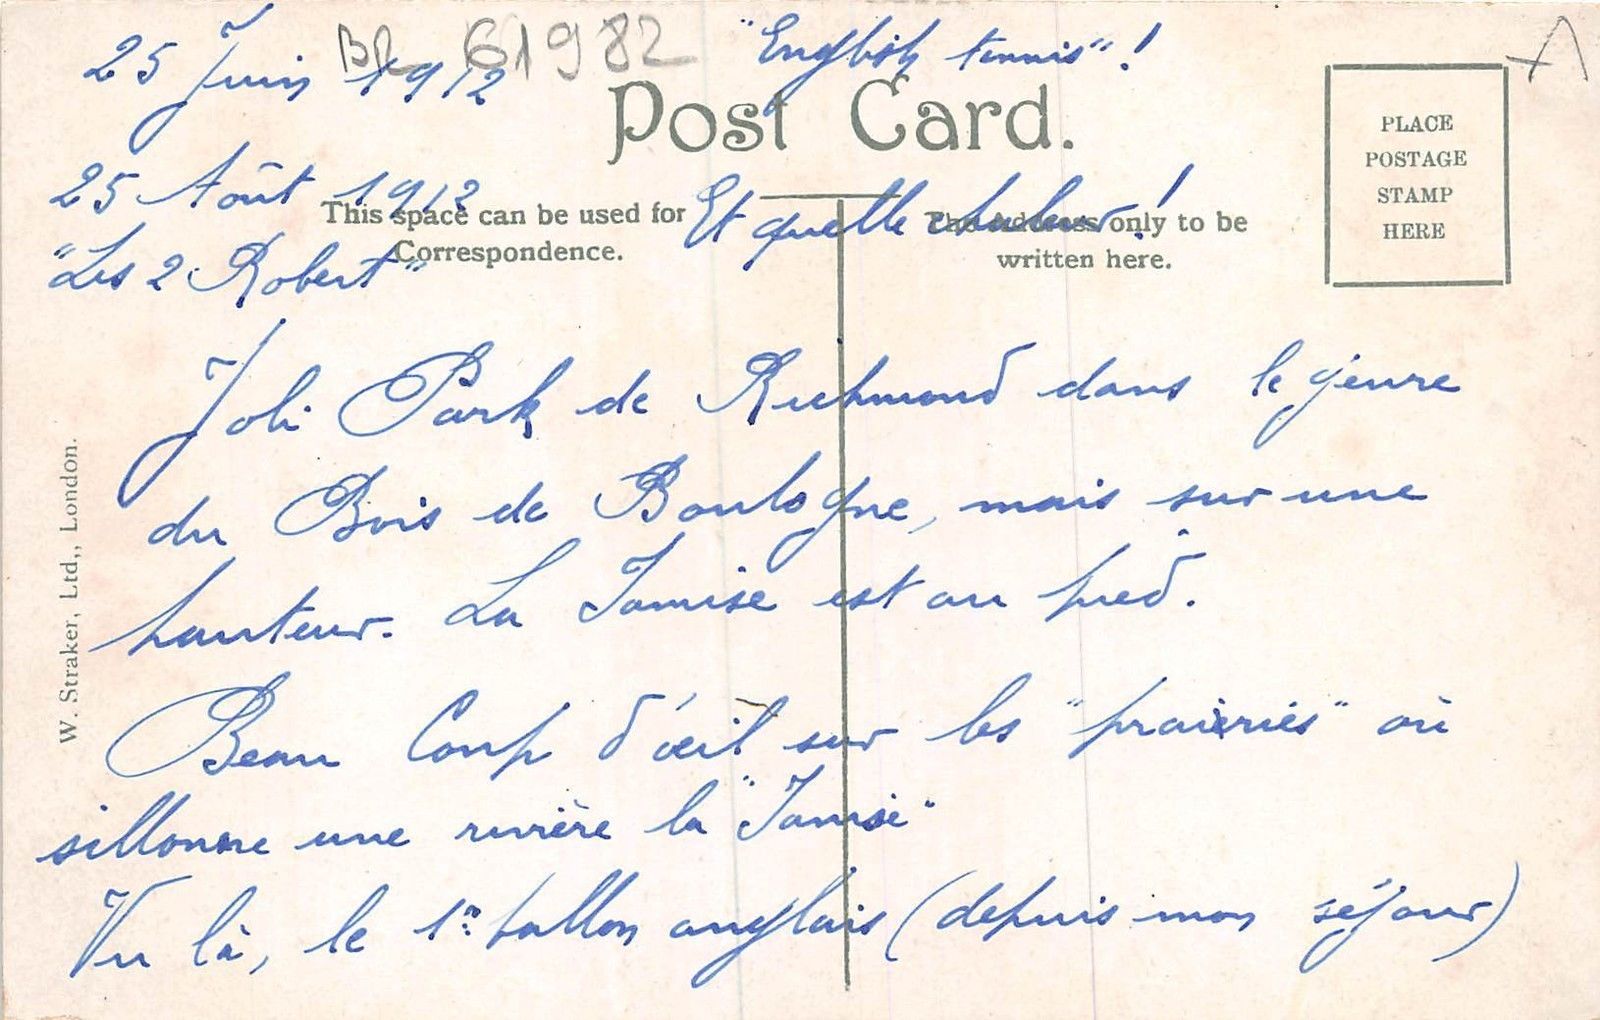 25 Juin 1912 "English tennis"!
BR 61982
Post Card.
PLACE
POSTAGE
STAMP
HERE
25 Août 1912 Et quelle chaleur!
This space can be used for
Correspondence.
The Address only to be
written here.
"Les 2 Robert"
Joli Park de Richmond dans le genre
du Bois de Boulogne, mais sur une
hauteur. La Tamise est au pied.
Beau Coup d'œil sur les "praieries" où
sillonne une rivière la "Tamise"
Vu là, le 1er ballon anglais (depuis mon séjour)
W. Straker, Ltd., London.